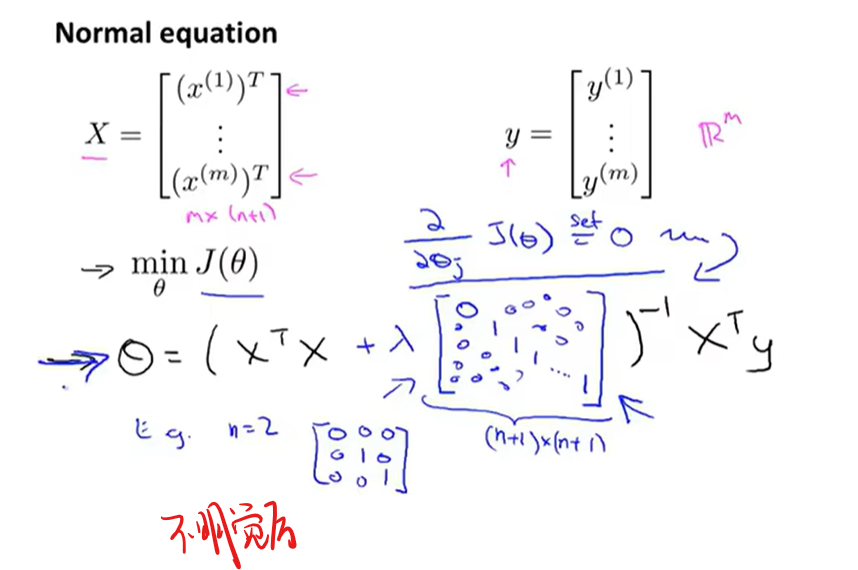 Normal equation
X = [ (x^(1))^T ⋮ (x^(m))^T ] ← ← y = [ y^(1) ⋮ y^(m) ] ℝ^m
↑
m× (n+1)
∂/∂θ_j J(θ) set = 0
→ min_θ J(θ)
→ θ = ( X^T X + λ [ 0 1 1 1 ... 1 ] )^-1 X^T y
(n+1)×(n+1)
E.g. n=2 [ 0 0 0
0 1 0
0 0 1 ]
不明觉厉